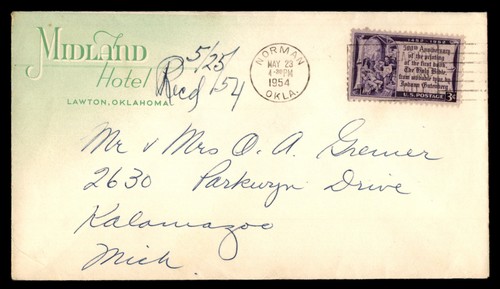 MIDLAND
Hotel
LAWTON, OKLAHOMA
5/25/
Recd 54
NORMAN
MAY 23
4-30PM
1954
OKLA.
1452-1952
500th Anniversary
of the printing
of the first book,
The Holy Bible,
from movable type, by
Johann Gutenberg
U.S. POSTAGE 3¢
Mr & Mrs O. A. Gremer
2630 Parkwyn Drive
Kalamazoo
Mich.